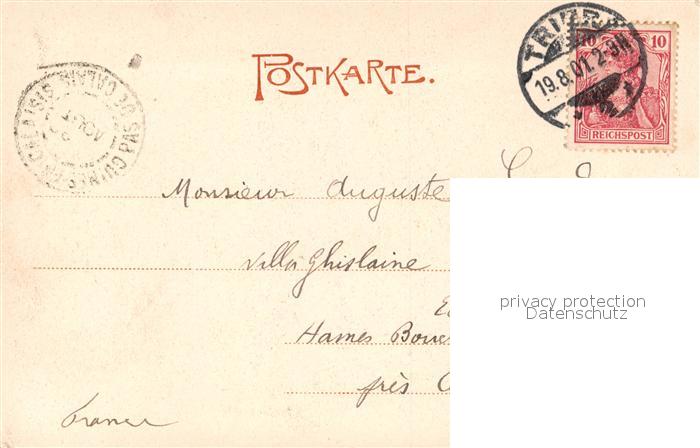 POSTKARTE.
TRIER
19.8.01.2-3N
10 10
REICHSPOST
GUINES-EN-CALAISIS PAS DE CALAIS
AOUT
Monsieur Auguste
Villa Ghislaine
privacy protection
Datenschutz
Hames
près
France